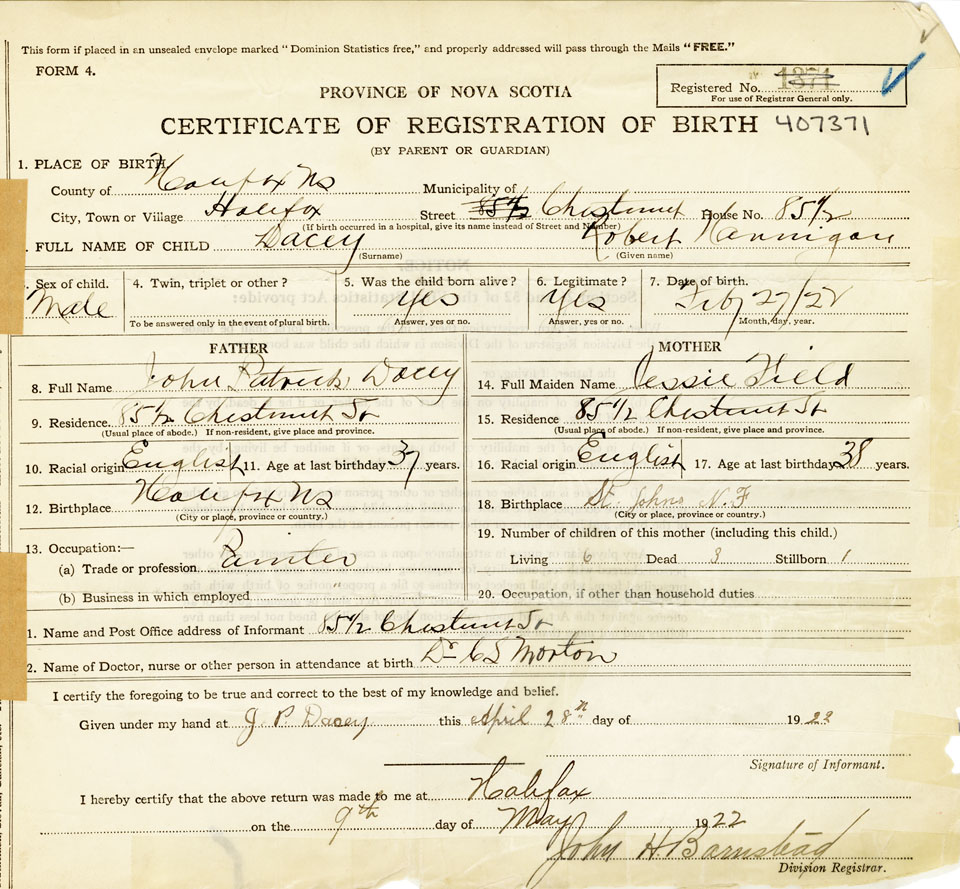 This form if placed in an unsealed envelope marked "Dominion Statistics free," and properly addressed will pass through the Mails "FREE."
FORM 4.
Registered No. 1371
For use of Registrar General only.
PROVINCE OF NOVA SCOTIA
CERTIFICATE OF REGISTRATION OF BIRTH 407371
(BY PARENT OR GUARDIAN)
1. PLACE OF BIRTH
County of Halifax NS Municipality of
City, Town or Village Halifax Street 85 1/2 Chestnut House No. 85 1/2
(If birth occurred in a hospital, give its name instead of Street and Number)
FULL NAME OF CHILD Dacey Robert Hannigan
(Surname) (Given name)
Sex of child. 4. Twin, triplet or other? 5. Was the child born alive? 6. Legitimate? 7. Date of birth.
Male Yes Yes Feb 27/22
To be answered only in the event of plural birth. Answer, yes or no. Answer, yes or no. Month, day, year.
FATHER MOTHER
8. Full Name John Patrick Dacey 14. Full Maiden Name Jessie Field
9. Residence. 85 1/2 Chestnut St 15. Residence 85 1/2 Chestnut St
(Usual place of abode.) If non-resident, give place and province. (Usual place of abode.) If non-resident, give place and province.
10. Racial origin English 11. Age at last birthday 37 years. 16. Racial origin English 17. Age at last birthday 38 years.
12. Birthplace Halifax NS 18. Birthplace St. Johns N.F
(City or place, province or country.) (City or place, province or country.)
13. Occupation:— 19. Number of children of this mother (including this child.)
(a) Trade or profession Painter Living 6 Dead 3 Stillborn 1
(b) Business in which employed " 20. Occupation, if other than household duties
1. Name and Post Office address of Informant 85 1/2 Chestnut St
2. Name of Doctor, nurse or other person in attendance at birth Dr C S Morton
I certify the foregoing to be true and correct to the best of my knowledge and belief.
Given under my hand at J P Dacey this April 28th day of 1922
Signature of Informant.
I hereby certify that the above return was made to me at Halifax
on the 9th day of May 1922
John H Barnstead
Division Registrar.